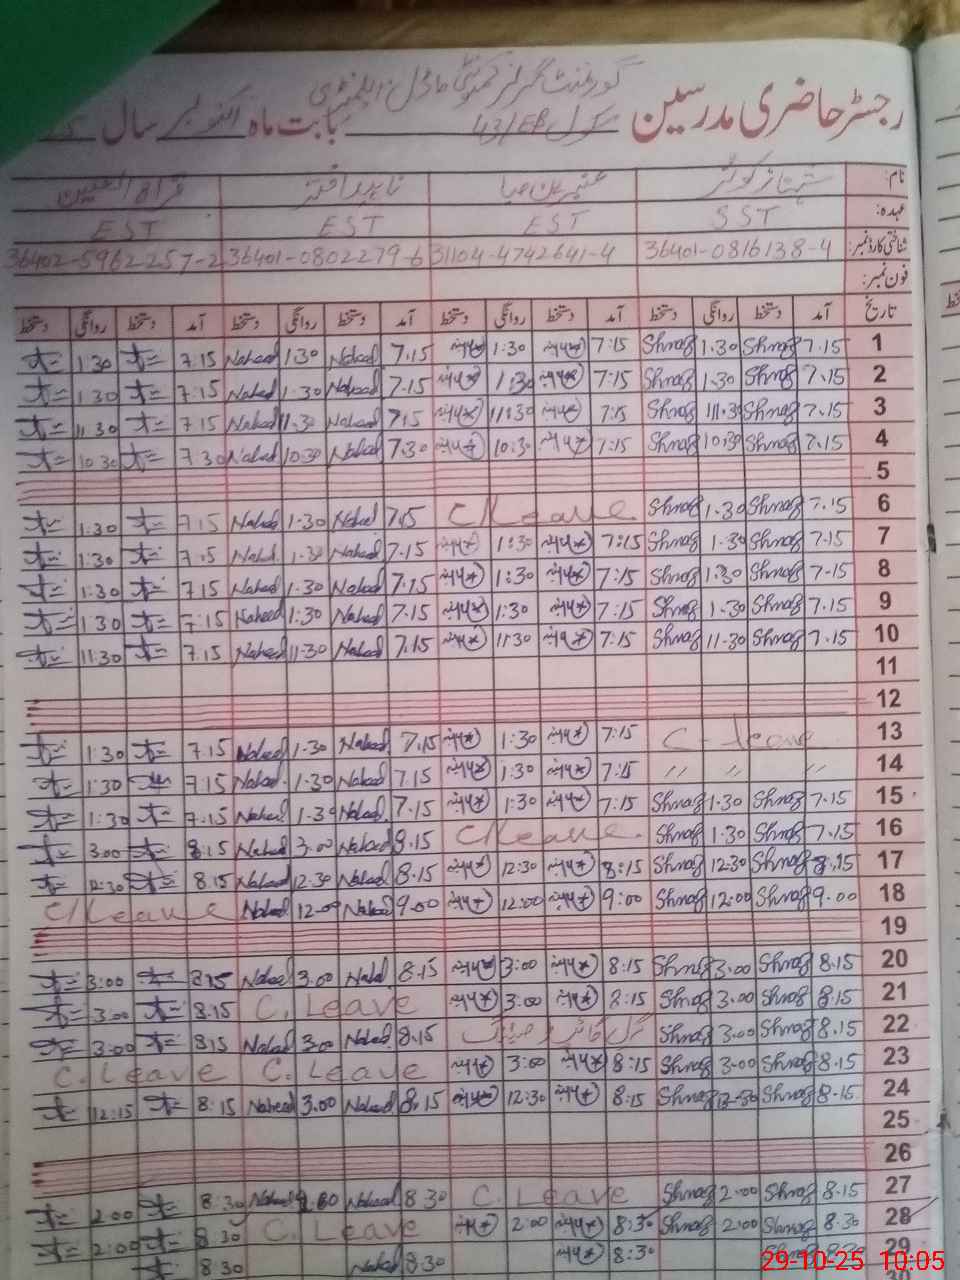 گورنمنٹ گرلز کمیونٹی ماڈل ایلیمنٹری
رجسٹر حاضری مدرسین سکول 43/EB بابت ماہ اکتوبر سال
نام: شہناز کوثر عنبرین صبا ناہید اختر قراۃ العین
عہدہ: SST EST EST EST
شناختی کارڈ نمبر: 36401-0816138-4 31104-4742641-4 36401-0802279-6 36402-5962257-2
فون نمبر:
تاریخ آمد دستخط روانگی دستخط آمد دستخط روانگی دستخط آمد دستخط روانگی دستخط آمد دستخط روانگی دستخط
1 7.15 Shnaz 1.30 Shnaz 7:15 1:30 7.15 Naheed 1.30 Naheed 7.15 1.30
2 7.15 Shnaz 1.30 Shnaz 7:15 1:30 7.15 Naheed 1.30 Naheed 7.15 1.30
3 7.15 Shnaz 11.30 Shnaz 7:15 11:30 7.15 Naheed 11.30 Naheed 7.15 11.30
4 7.15 Shnaz 10.30 Shnaz 7:15 10:30 7.30 Naheed 10.30 Naheed 7.30 10.30
5
6 7.15 Shnaz 1.30 Shnaz C Leave 7.15 Naheed 1.30 Naheed 7.15 1:30
7 7.15 Shnaz 1.30 Shnaz 7:15 1:30 7.15 Naheed 1.30 Naheed 7.15 1:30
8 7.15 Shnaz 1.30 Shnaz 7:15 1:30 7.15 Naheed 1.30 Naheed 7.15 1:30
9 7.15 Shnaz 1.30 Shnaz 7:15 1:30 7.15 Naheed 1:30 Naheed 7:15 1 30
10 7.15 Shnaz 11.30 Shnaz 7:15 11:30 7.15 Naheed 11.30 Naheed 7.15 11:30
11
12
13 C- leave 7:15 1:30 7.15 Naheed 1.30 Naheed 7.15 1:30
14 〃 〃 〃 7:15 1:30 7.15 Naheed 1.30 Naheed 7.15 1:30
15 7.15 Shnaz 1.30 Shnaz 7:15 1:30 7.15 Naheed 1.30 Naheed 7.15 1:30
16 7.15 Shnaz 1.30 Shnaz C Leave 8.15 Naheed 3.00 Naheed 8.15 3.00
17 8.15 Shnaz 12.30 Shnaz 8:15 12:30 8.15 Naheed 12.30 Naheed 8.15 12:30
18 9.00 Shnaz 12.00 Shnaz 9:00 12:00 9.00 Naheed 12.00 Naheed C Leave
19
20 8.15 Shnaz 3.00 Shnaz 8:15 3:00 8.15 Naheed 3.00 Naheed 8.15 3:00
21 8.15 Shnaz 3.00 Shnaz 8:15 3:00 C. Leave 8.15 3.00
22 8.15 Shnaz 3.00 Shnaz 8.15 Naheed 3.00 Naheed 8.15 3:00
23 8.15 Shnaz 3.00 Shnaz 8:15 3:00 C. Leave C. Leave
24 8.15 Shnaz 12.30 Shnaz 8:15 12:30 8.15 Naheed 3.00 Naheed 8.15 12:15
25
26
27 8.15 Shnaz 2.00 Shnaz C. Leave 8.30 Naheed Naheed 8.30 2:00
28 8.30 Shnaz 2.00 Shnaz 8:30 2:00 C. Leave 8.30 2:00
29 8.30 Shnaz 8:30 8.30 Naheed 8.30
29-10-25 10:05